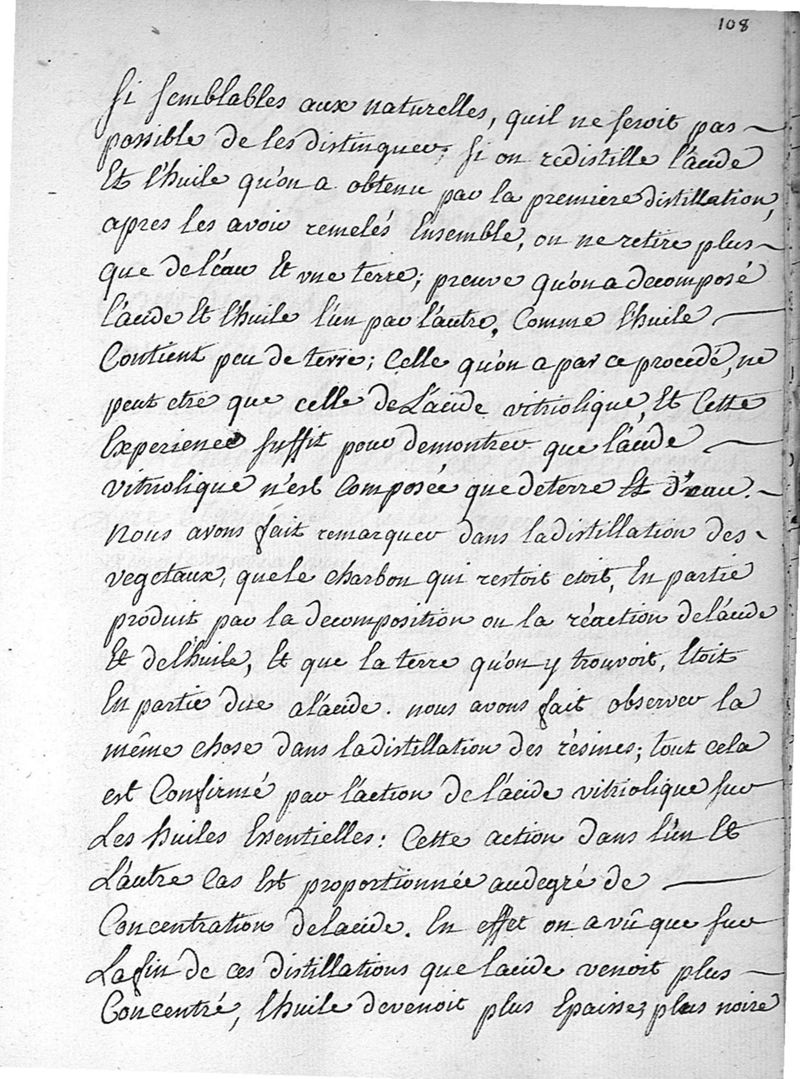 108
si semblables aux naturelles, quil ne seroit pas
possible de les distinguer; si on redistille l'acide
Et l'huile qu'on a obtenu par la premiere distillation,
apres les avoir remelés Ensemble, on ne retire plus
que de l'eau Et vne terre; preuve qu'on a decomposé
l'acide Et l'huile l'un par l'autre, Comme l'huile
Contient peu de terre; Celle qu'on a par ce procedé, ne
peut etre que celle de L'acide vitriolique, Et Cette
Experience suffit pour demontrer que l'acide
vitriolique n'est Composée que de terre Et d'eau.
nous avons fait remarquer dans la distillation des
vegetaux, que le charbon qui restoit etoit, En partie
produit par la decomposition ou la réaction de l'acide
Et de l'huile, Et que la terre qu'on y trouvoit, Etoit
En partie due a l'acide. nous avons fait observer la
même chose dans la distillation des résines; tout cela
est Confirmé par l'action de l'acide vitriolique sur
Les huiles Essentielles: Cette action dans l'un Et
L'autre Cas Est proportionnée au degré de
Concentration de lacide. En effet on a vû que sur
La fin de ces distillations que lacide venoit plus
Concentré, l'huile devenoit plus Epaisse, plus noire